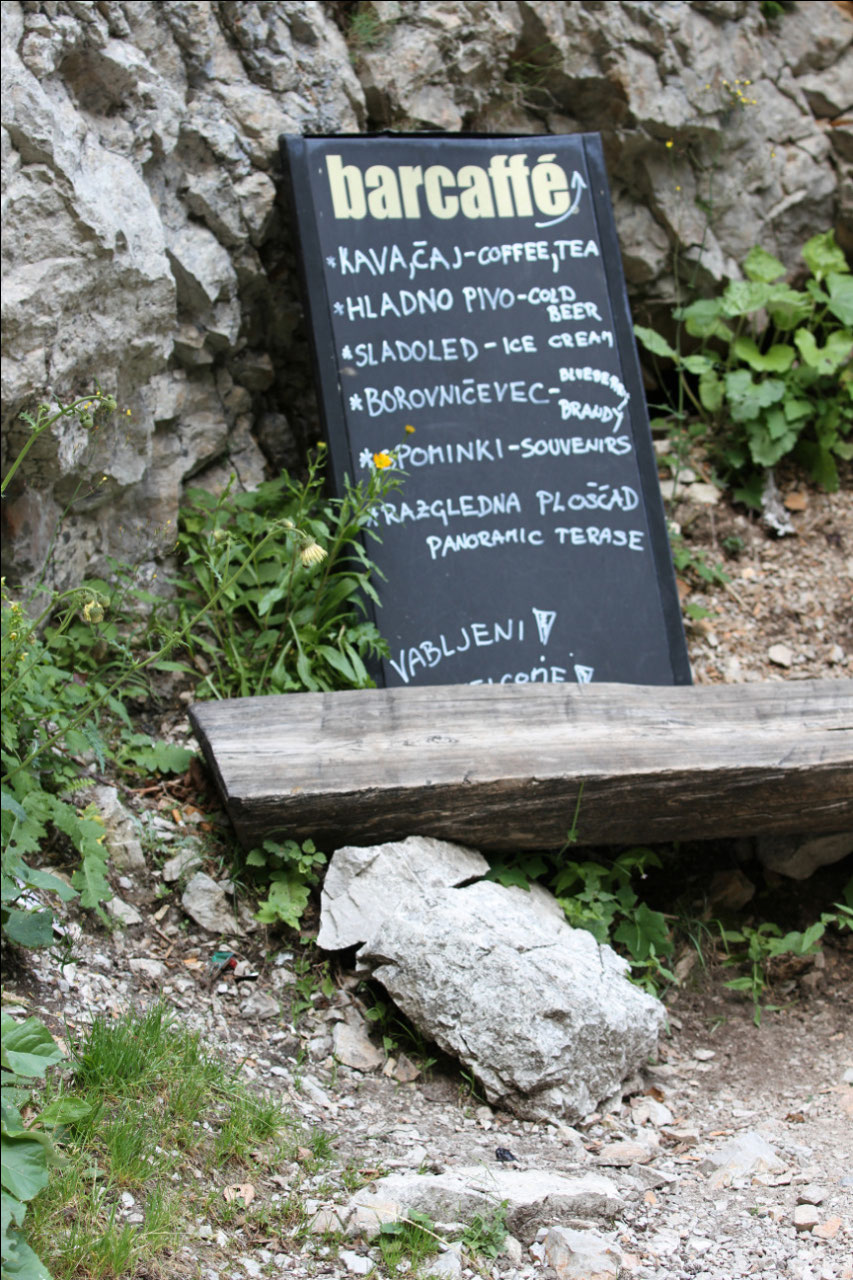 barcaffé
*KAVA, ČAJ-COFFEE, TEA
*HLADNO PIVO-COLD
BEER
*SLADOLED-ICE CREAM
*BOROVNIČEVEC-BLUEBERRY
BRANDY
*SPOMINKI-SOUVENIRS
*RAZGLEDNA PLOŠČAD
PANORAMIC TERASE
VABLJENI!
WELCOME!